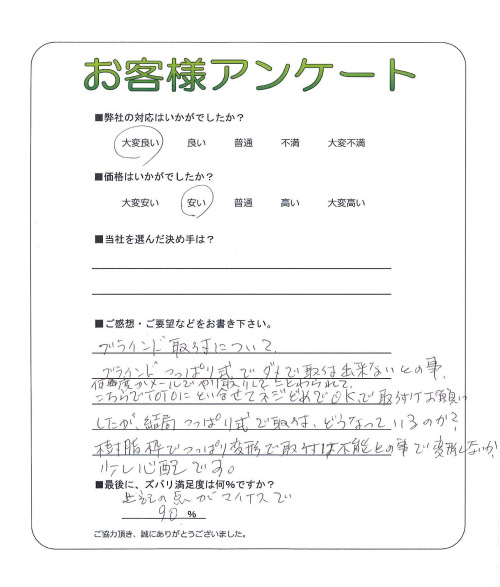 お客様アンケート
■弊社の対応はいかがでしたか？
大変良い 良い 普通 不満 大変不満
■価格はいかがでしたか？
大変安い 安い 普通 高い 大変高い
■当社を選んだ決め手は？
■ご感想・ご要望などをお書き下さい。
ブラインド取付について、
ブラインドつっぱり式でダメで取付出来ないとの事、
何度かメールでやり取りして
こちらでTOTOにとい合せてネジどめでOK、で取付けお願い
したが、結局つっぱり式で取付、どうなっているのか?
樹脂枠でつっぱり変形で取付は不能との事で変形しないか
少し心配です。
■最後に、ズバリ満足度は何%ですか？
上記の点がマイナスで
90 %
ご協力頂き、誠にありがとうございました。